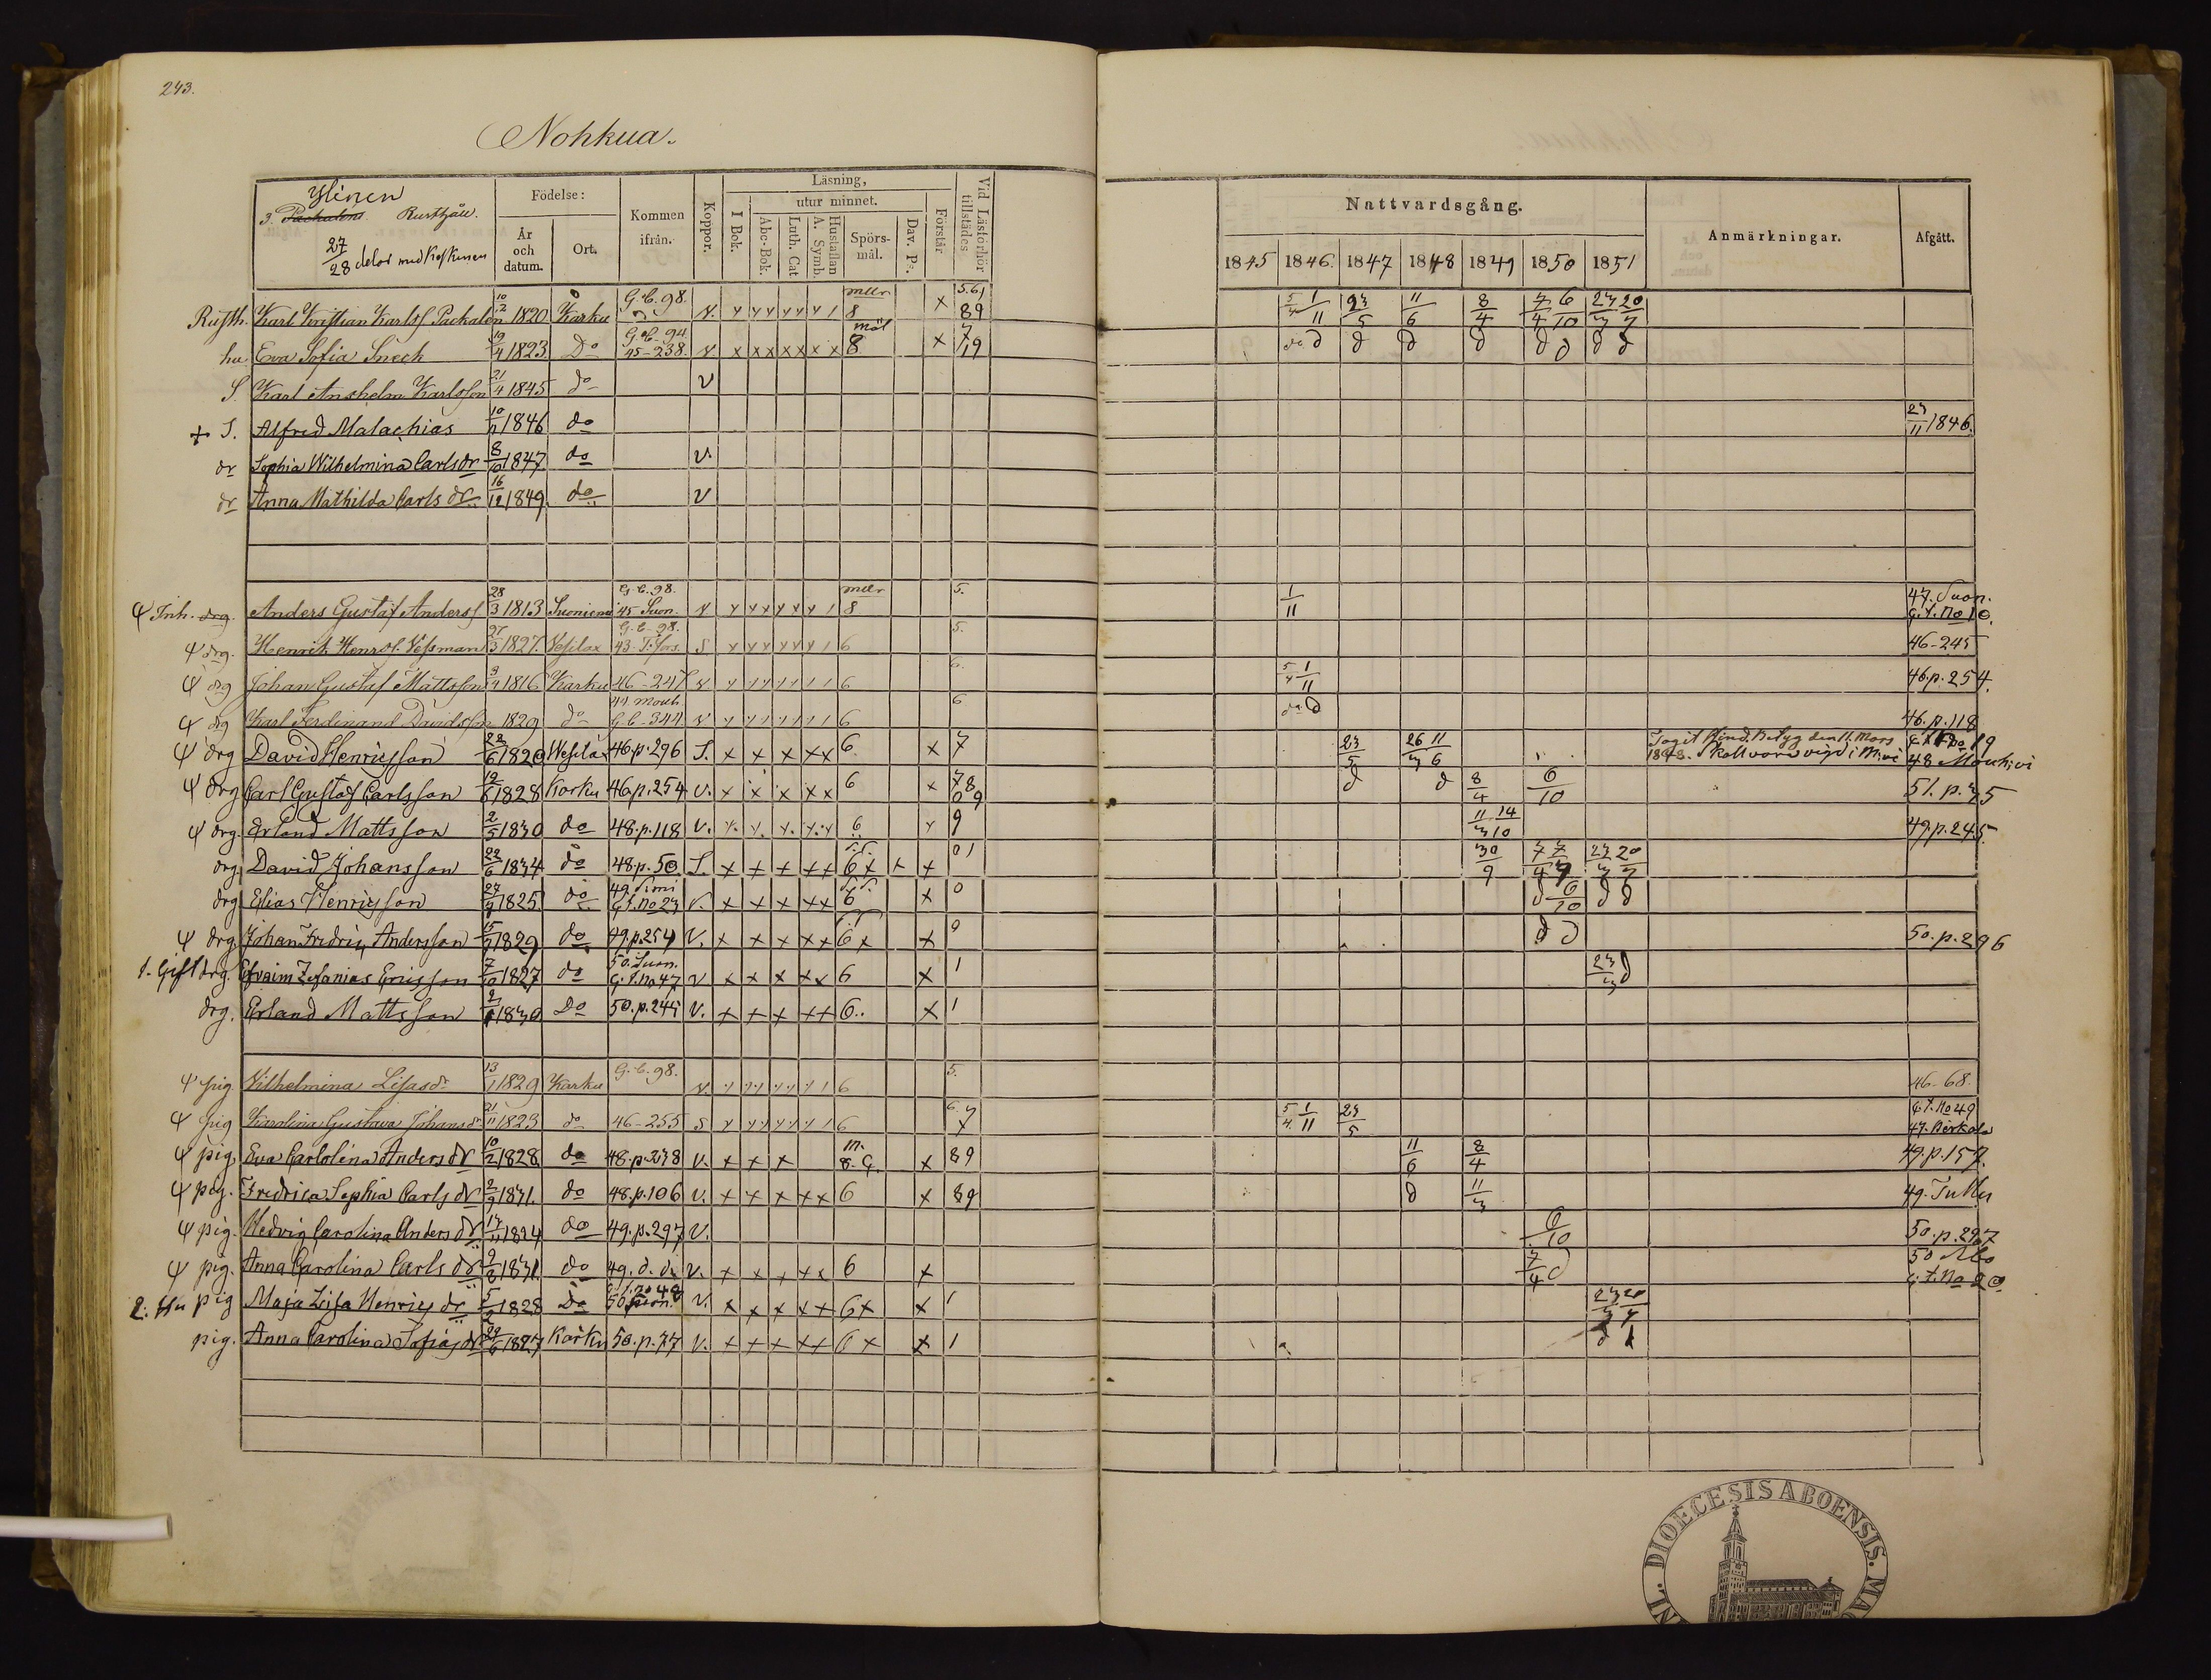 243.
Nohkua.
Ylinen
3. Packalens Rusthåll.
27/28 delar med Koskinen
Födelse:
År och datum.
Ort.
Kommen ifrån.
Koppor.
Läsning,
I Bok.
utur minnet.
Abc-Bok.
Luth. Cat.
Hustaflan A. Symb.
Spörsmål.
Dav. Ps.
Förstår
Vid Läsförhör tillstädes
Nattvardsgång.
1845 1846. 1847 1848 1849 1850 1851
Anmärkningar.
Afgått.
Rusth. Karl Kristian Karlsf Packalen 10/2 1820 Karku G.b. 98. v. 8 x 5.6/ 89 5/4 1/11 23/5 11/6 8/4 7/4 6/10 23/3 20/7
hu. Eva Sofia Snech 19/4 1823 Do G.b. 94. 45-238. v x x x x x x x 8 x 7 19 do d d d d d d d d
S. Karl Anshelm Karlsson 21/4 1845 do v
+ S. Alfred Malachias 10/11 1846 do 23/11 1846.
dr Sophia Wilhelmina Carlsdr 8/10 1847 do v.
dr Anna Mathilda Carls dr 16/12 1849 do v
φ Inh. drg. Anders Gustaf Andersf. 28/3 1813 Suoniemi G.b. 98. 45 Suon. v 8 5. 1/11 47. Suon. G.t. No 10.
φ drg. Henrik Henrsf. Vessman 27/3 1827. Vesilax G.b. 98. 43 T:fors. S 6 5. 46-245
φ drg Johan Gustaf Mattsson 9/4 1816 Karku 46-247 v 6 6. 5/4 1/11 46.p.254.
φ drg Karl Ferdinand Davidsson 1829 do 44 Mouh. G.b-344. v 6 6 do d 46.p.118
φ drg David Henricsson 22/6 1820 Wesilax 46.p.296 S. x x x x x 6 x 7 23/5 26/3 11/6 Tagit Hind. Betyg den 11. Mars 1848. G.t. No 19 48 Mouhivi
φ drg Carl Gustaf Carlsson 19/6 1828 Karku 46p.254 v. x x x x x 6 x 78 09 d d 8/4 6/10 51. p. 35
φ drg. Erland Mattsson 2/5 1830 do 48.p.118 v. 6 9 11/3 14/10 49.p.245.
drg David Johansson 22/6 1834 do 48.p.50 S. x x x x x 6 x x x 01 30/9 7/4 7/7 23/3 20/7
drg Elias Henricsson 27/7 1825 do 49. Simi G.t. No 23 v. x x x x x 6 x 0 d 6/10 d d
φ drg. Johan Fredric Andersson 15/7 1829 do 49.p.254 v. x x x x x 6 x x 0 d d 50.p.296
1. Gift drg. Efraim Zefanias Ericsson 7/10 1827 do 50. Suon. G.t. No 47 v x x x x x 6 x 1 23/3 d
drg. Erland Mattsson 2/5 1830 Do 50.p.245 v. x x x x x 6.. x 1
φ pig. Vilhelmina Lisasdr 13/1 1829 Karku G.b. 98. v. 6 5. 46-68.
φ pig Karolina Gustava Johansdr 21/11 1823 do 46-255 S 6 6. 7 5/4 1/11 23/5 G.t. No 49 47. Birkala
φ pig. Eva Carlolina Anders dr 10/2 1828 do 48.p.238 v. x x x x 89 11/6 8/4 49.p.157.
φ pig. Fredrica Sophia Carls dr 2/9 1831. do 48.p.106 v. x x x x x 6 x 89 d 11/3
φ pig. Hedvig Carolina Anders dr 17/11 1834 do 49.p.297 v. 6/10 50.p.297
φ pig. Anna Carolina Carls dr 9/8 1831. do 49. v. x x x x x 6 x 7/4 d 50 Åbo G.t. No 20
2. Hu pig Maja Lisa Henrics dr 5/2 1828 Do G.t. No 48 50 Suon. v. x x x x x 6 x x 1 23/3 20/7
pig. Anna Carolina Sofias dr 27/6 1827 Karku 50.p.77 v. x x x x x 6 x x 1 d d
DIOECESIS ABOENSIS. MAG